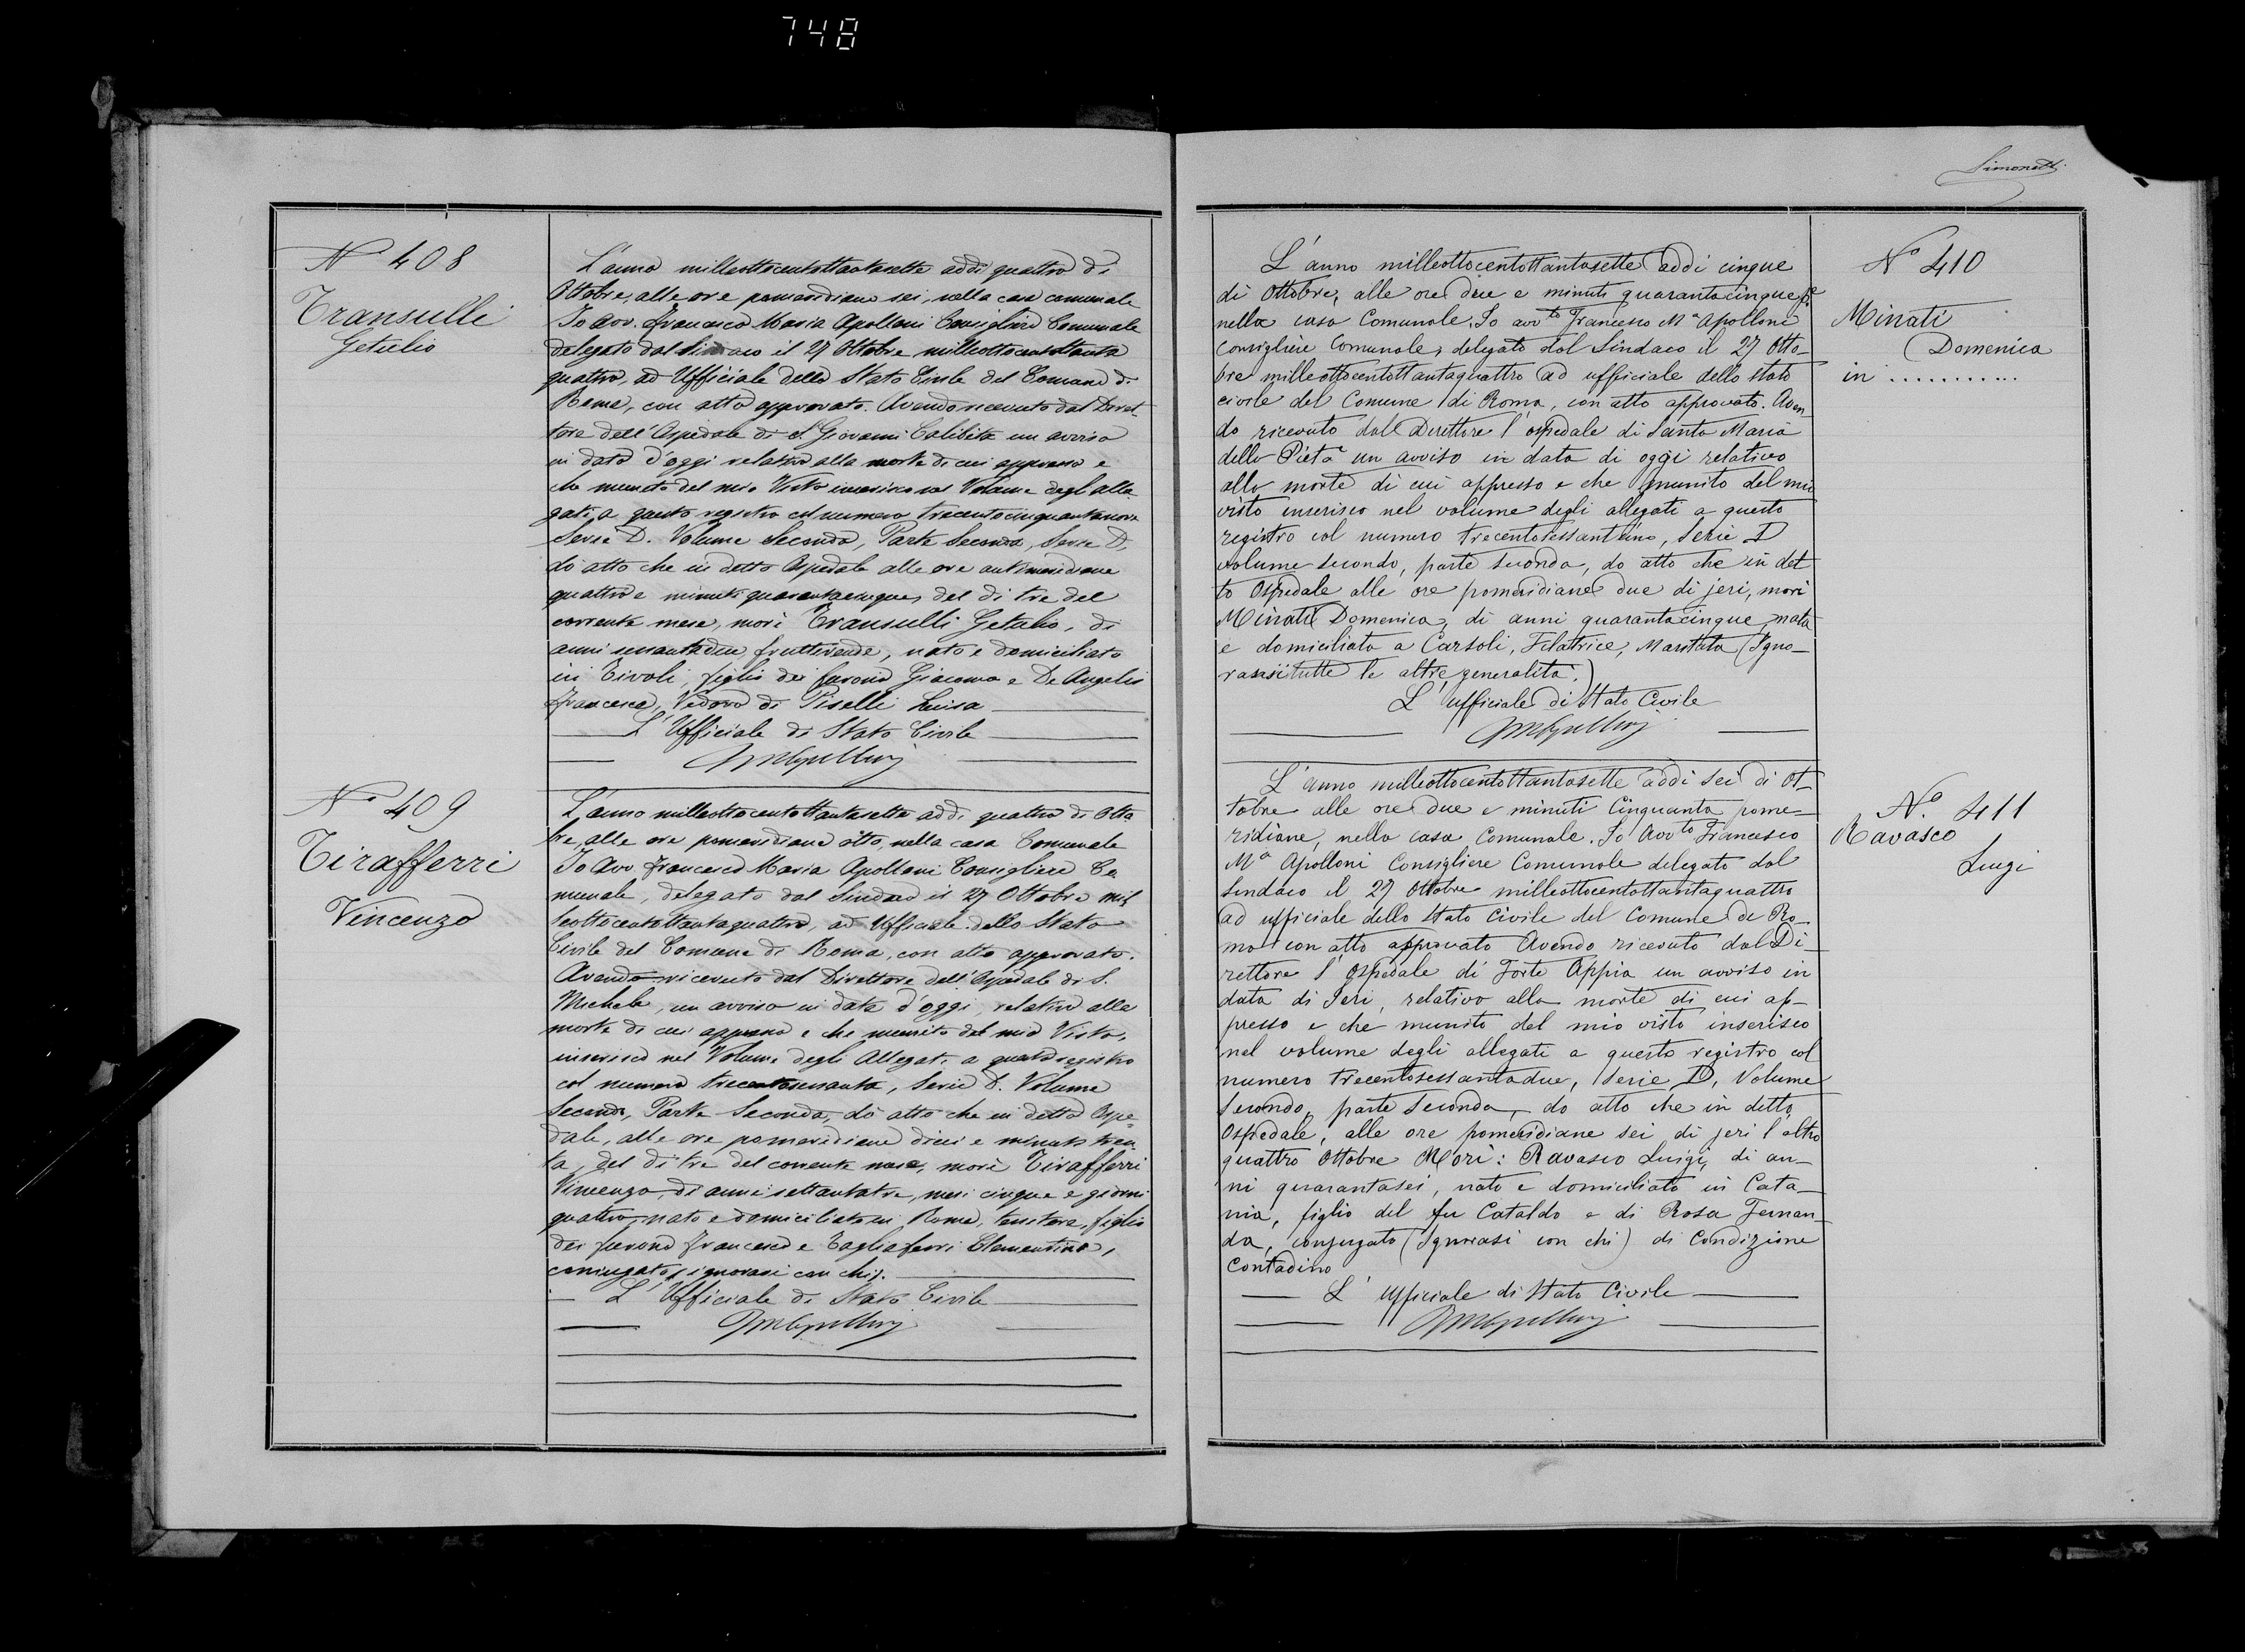 748
Simonetti
N 408
Transulli
Getulio
L'anno milleottocentottantasette addi quattro di
Ottobre, alle ore pomeridiane sei, nella casa comunale
Io Avv. Francesco Maria Apolloni Consigliere Comunale
delegato dal Sindaco il 27 Ottobre milleottocentottanta
quattro, ad Ufficiale dello Stato Civile del Comune di
Roma, con atto approvato. Avendo ricevuto dal Diret-
tore dell'Ospedale di S. Giovanni Calibita un avviso
in data d'oggi relativo alla morte di cui appresso e
che munito del mio Visto inserisco nel Volume degli alle
gati a questo registro col numero trecentocinquantanove
Serie D. Volume Secondo, Parte Seconda, Serie D,
do atto che in detto Ospedale alle ore antimeridiane
quattro e minuti quarantacinque, del di tre del
corrente mese, morì Transulli Getulio, di
anni sessantadue, fruttivendolo, nato e domiciliato
in Tivoli, figlio dei furono Giacomo e De Angelis
Francesca, Vedovo di Piselli Luisa
L'Ufficiale di Stato Civile
FMApolloni
N° 409
Tirafferri
Vincenzo
L'anno milleottocentottantasette addi quattro di Otto
bre, alle ore pomeridiane otto, nella casa Comunale
Io Avv Francesco Maria Apolloni Consigliere Co
munale, delegato dal Sindaco il 27 Ottobre mil
leottocentottantaquattro, ad Ufficiale dello Stato
Civile del Comune di Roma, con atto approvato.
Avendo ricevuto dal Direttore dell'Ospedale di S.
Michele, un avviso in data d'oggi, relativo alla
morte di cui appresso e che munito del mio Visto,
inserisco nel Volume degli Allegati a questo registro
col numero trecentosessanta, Serie D. Volume
Secondo, Parte Seconda, do atto che in detto Ospe=
dale, alle ore pomeridiane dieci e minuti tren
ta, del di tre del corrente mese, morì Tirafferri
Vincenzo, di anni settantatre, mesi cinque e giorni
quattro, nato e domiciliato in Roma, tessitore, figlio
dei furono Francesco e Tagliaferri Clementina,
coniugato (ignorasi con chi).
L'Ufficiale di Stato Civile
FMApolloni
N° 410
Minati
Domenica
in ...........
L'anno milleottocentottantasette addi cinque
di Ottobre, alle ore due e minuti quarantacinque pe
nella casa Comunale. Io avv.to Francesco M.a Apolloni
Consigliere Comunale, delegato dal Sindaco il 27 Otto-
bre milleottocentottantaquattro ad ufficiale dello stato
civile del Comune di Roma, con atto approvato. Aven
do ricevuto dal Direttore l'ospedale di Santa Maria
della Pietà un avviso in data di oggi relativo
alla morte di cui appresso e che munito del mio
visto inserisco nel volume degli allegati a questo
registro col numero trecentosessantuno, Serie D
volume secondo, parte seconda, do atto che in det
to Ospedale alle ore pomeridiane due di jeri, morì
Minati Domenica, di anni quarantacinque, nata
e domiciliata a Carsoli, Filatrice, Maritata (Igno-
ransi tutte le altre generalità.)
L'ufficiale di Stato Civile
FMApolloni
N°. 411
Ravasco
Luigi
L'anno milleottocentottantasette addi sei di ot-
tobre alle ore due e minuti Cinquanta pome-
ridiane, nella casa Comunale. Io Avv.to Francesco
M.a Apolloni Consigliere Comunale delegato dal
Sindaco il 27 Ottobre milleottocentottantaquattro
ad ufficiale dello Stato Civile del Comune di Ro-
ma con atto approvato Avendo ricevuto dal Di-
rettore l'Ospedale di Forte Appia un avviso in
data di Ieri, relativo alla morte di cui ap-
presso e che munito del mio visto inserisco
nel volume degli allegati a questo registro col
numero trecentosessantadue, Serie D, Volume
Secondo, parte Seconda, do atto che in detto
Ospedale, alle ore pomeridiane sei di jeri l'altro
quattro Ottobre Morì: Ravasco Luigi, di an-
ni quarantasei, nato e domiciliato in Cata-
nia, figlio del fu Cataldo e di Rosa Fernan-
da, conjugato (Ignorasi con chi) di Condizione
Contadino
L'ufficiale di Stato Civile
FMApolloni